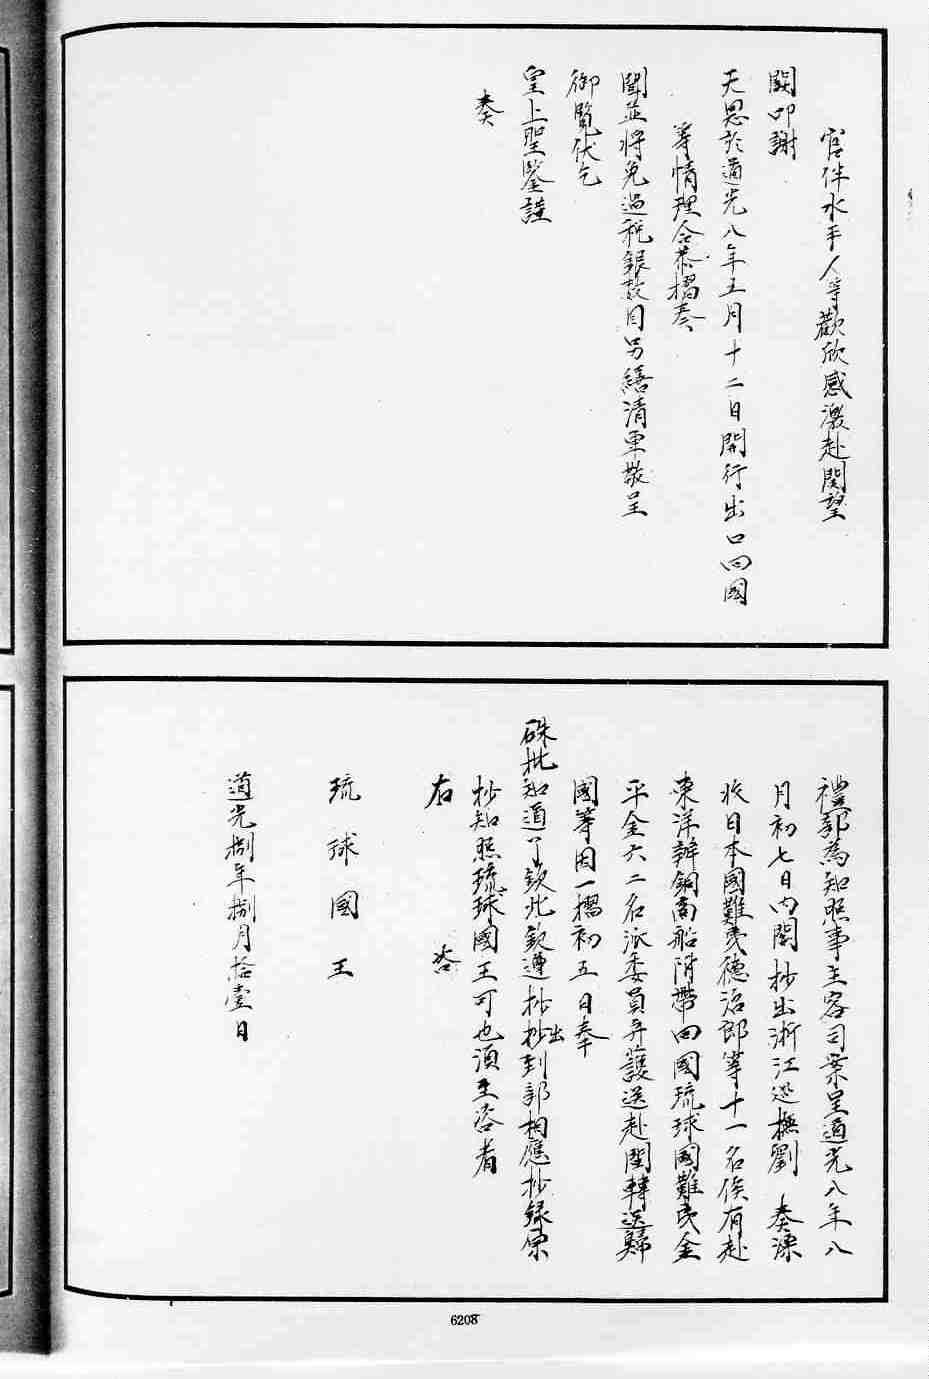 官伴水手人等歡欣感激赴関望
闕叩謝
天恩於道光八年五月十二日開行出口回國
等情理合恭摺奏
聞並將免過税銀数目另繕清單敬呈
御覧伏乞
皇上聖鑒謹
奏
禮部為知照事主客司案呈道光八年八
月初七日内閣抄出浙江巡撫劉　奏漂
收日本國難夷德治郎等十一名俟有赴
東洋辦銅商船附帶回國琉球國難夷金
平金六二名派委員弁護送赴閩轉送歸
國等因一摺初五日奉
硃批知道了欽此欽遵抄出抄到部相應抄錄原
抄知照琉球國王可也須至咨者
右　咨
琉球國王
道光捌年捌月拾壹日
6208